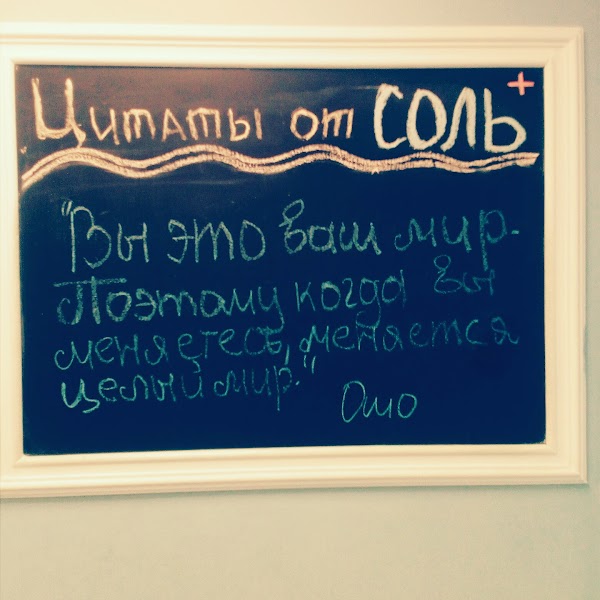 Цитаты от СОЛЬ+
"Вы это ваш мир.
Поэтому когда вы
меняетесь, меняется
целый мир."
Ошо